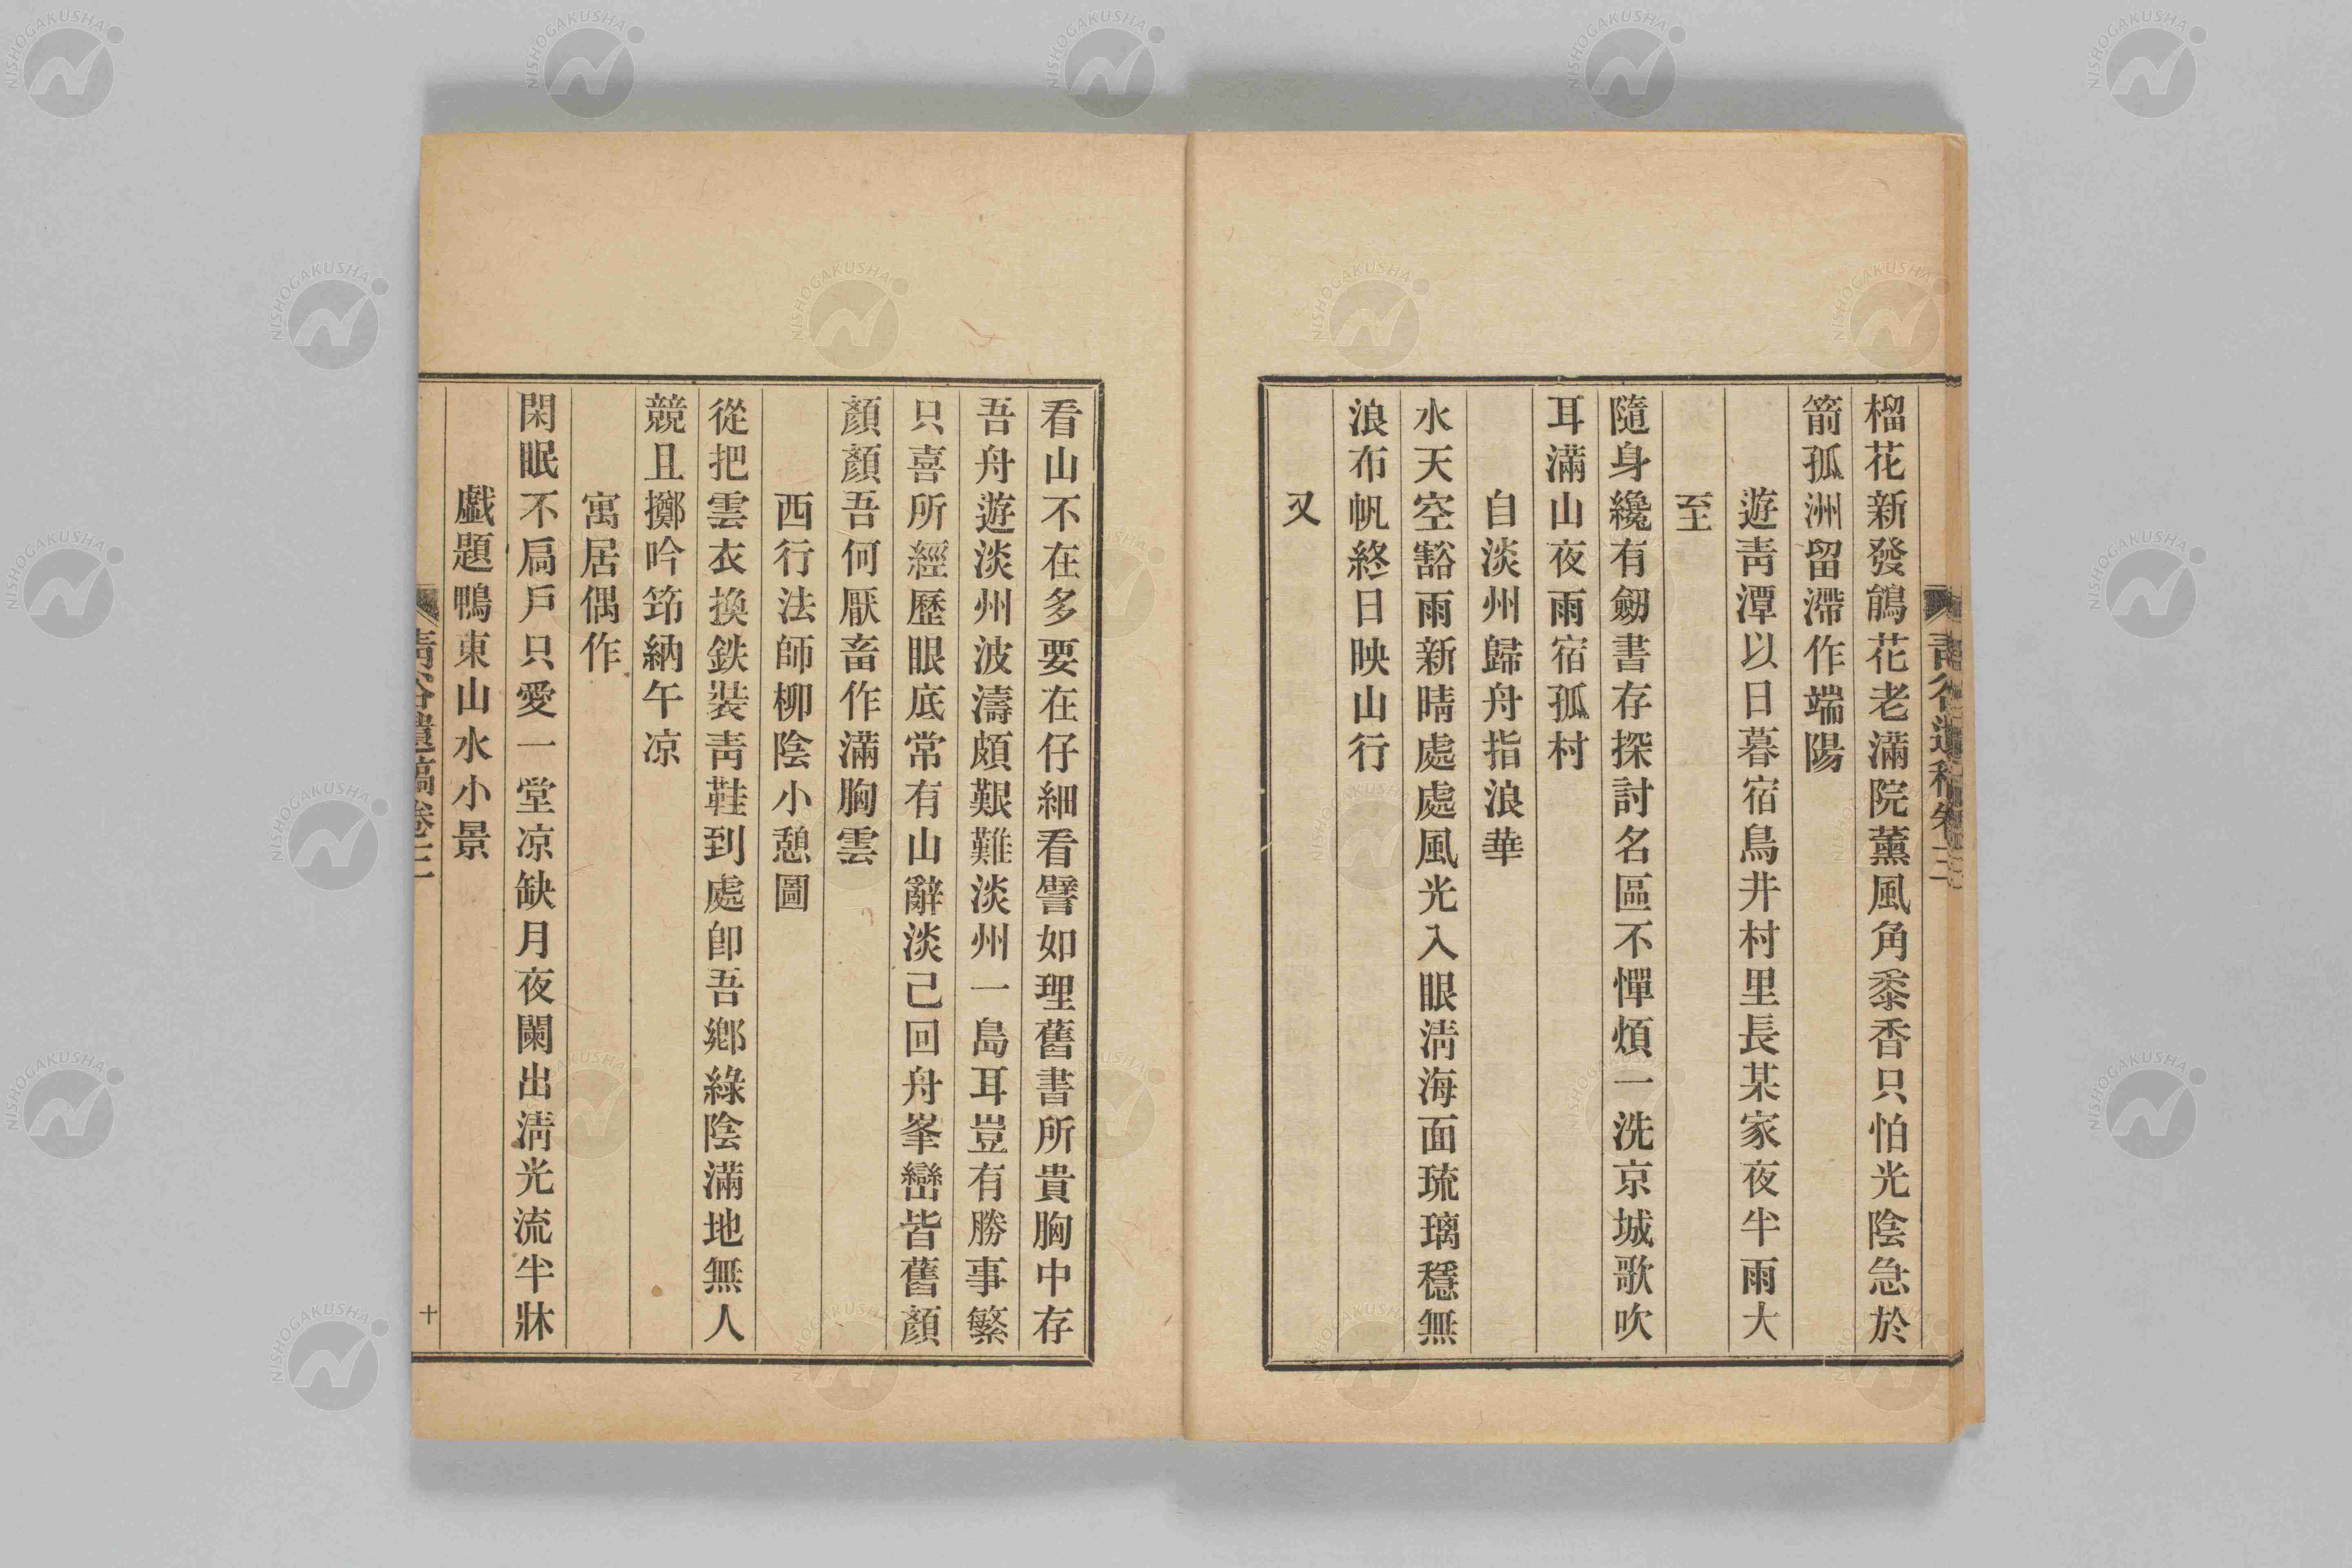 榴花新發鵃花老滿院薰風角黍香只怕光陰急於
箭孤洲留滯作端陽
遊靑潭以日暮宿鳥井村里長某家夜半雨大
至
隨身纔有劒書存探討名區不憚煩一洗京城歌吹
耳滿山夜雨宿孤村
自淡州歸舟指浪華
水天空豁雨新晴處處風光入眼淸海面琉璃穩無
浪布帆終日映山行
又
看山不在多要在仔細看譬如理舊書所貴胸中存
吾舟遊淡州波濤頗艱難淡州一島耳豈有勝事繁
只喜所經歷眼底常有山辭淡已回舟峯巒皆舊顏
顏顏吾何厭畜作滿胸雲
西行法師柳陰小憩圖
從把雲衣換鉄裝靑鞋到處卽吾鄉綠陰滿地無人
競且擲吟筇納午凉
寓居偶作
閑眠不扃戶只愛一堂凉缺月夜闌出淸光流半牀
戲題鴨東山水小景
靑谷遺稿卷三
十